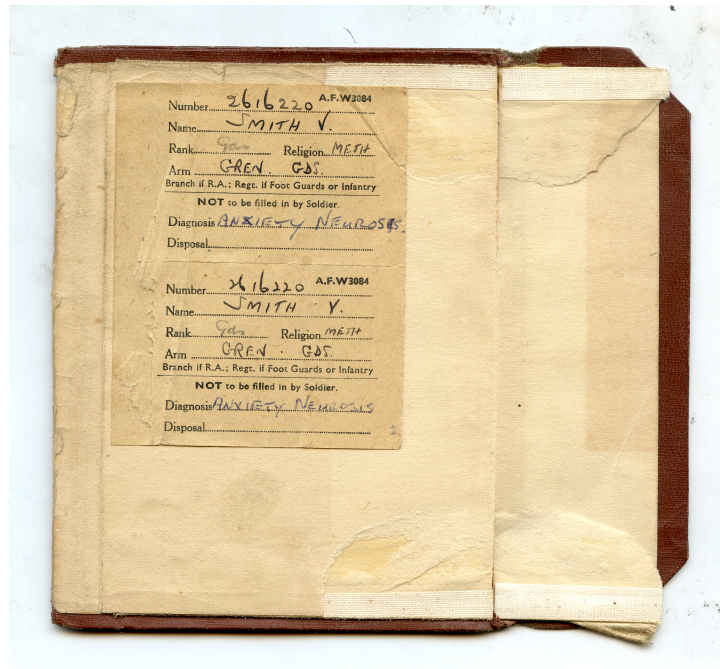 A.F.W3084
Number 2616220
Name SMITH V.
Rank Gds Religion METH
Arm GREN. GDS.
Branch if R.A.; Regt. if Foot Guards or Infantry
NOT to be filled in by Soldier.
Diagnosis ANXIETY NEUROSIS.
Disposal
A.F.W3084
Number 2616220
Name SMITH V.
Rank Gds Religion METH
Arm GREN. GDS.
Branch if R.A.; Regt. if Foot Guards or Infantry
NOT to be filled in by Soldier.
Diagnosis ANXIETY NEUROSIS
Disposal